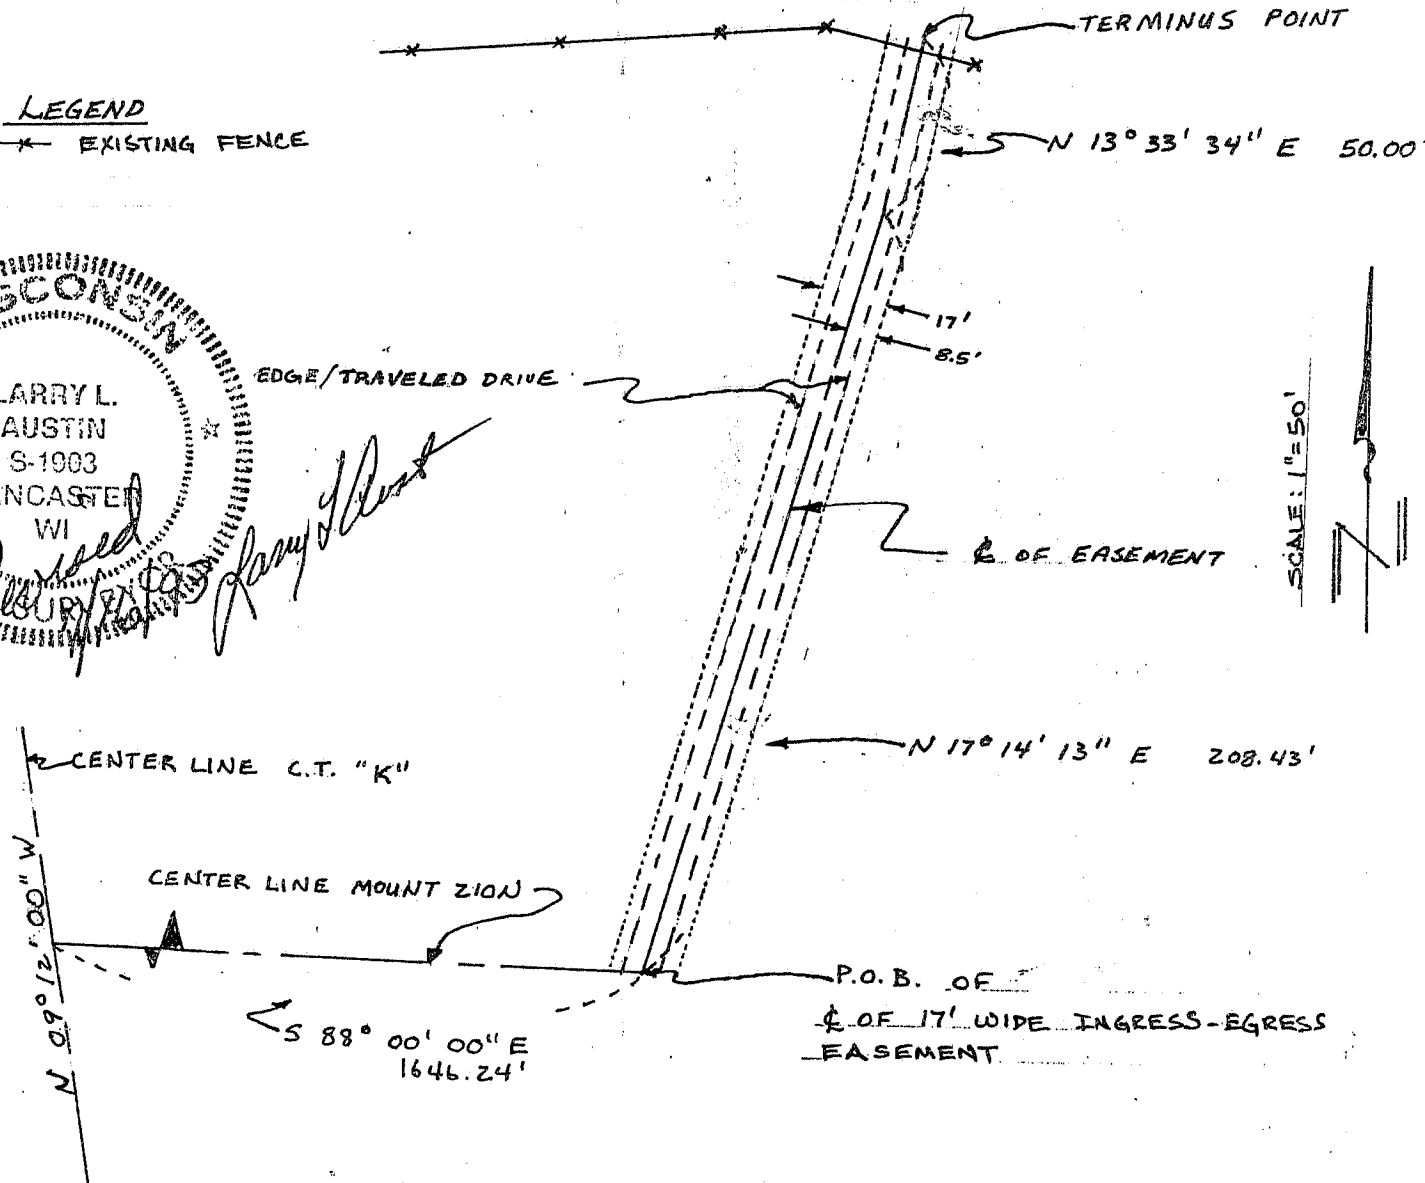 TERMINUS POINT
LEGEND
EXISTING FENCE
N 13° 33' 34" E 50.00'
17'
8.5'
EDGE/TRAVELED DRIVE
LARRY L.
AUSTIN
S-1903
WI
SCALE: 1"=50'
℄ OF EASEMENT
N 17° 14' 13" E 208.43'
CENTER LINE C.T. "K"
N 09° 12' 00" W
CENTER LINE MOUNT ZION
S 88° 00' 00" E
1646.24'
P.O.B. OF
℄ OF 17' WIDE INGRESS-EGRESS
EASEMENT